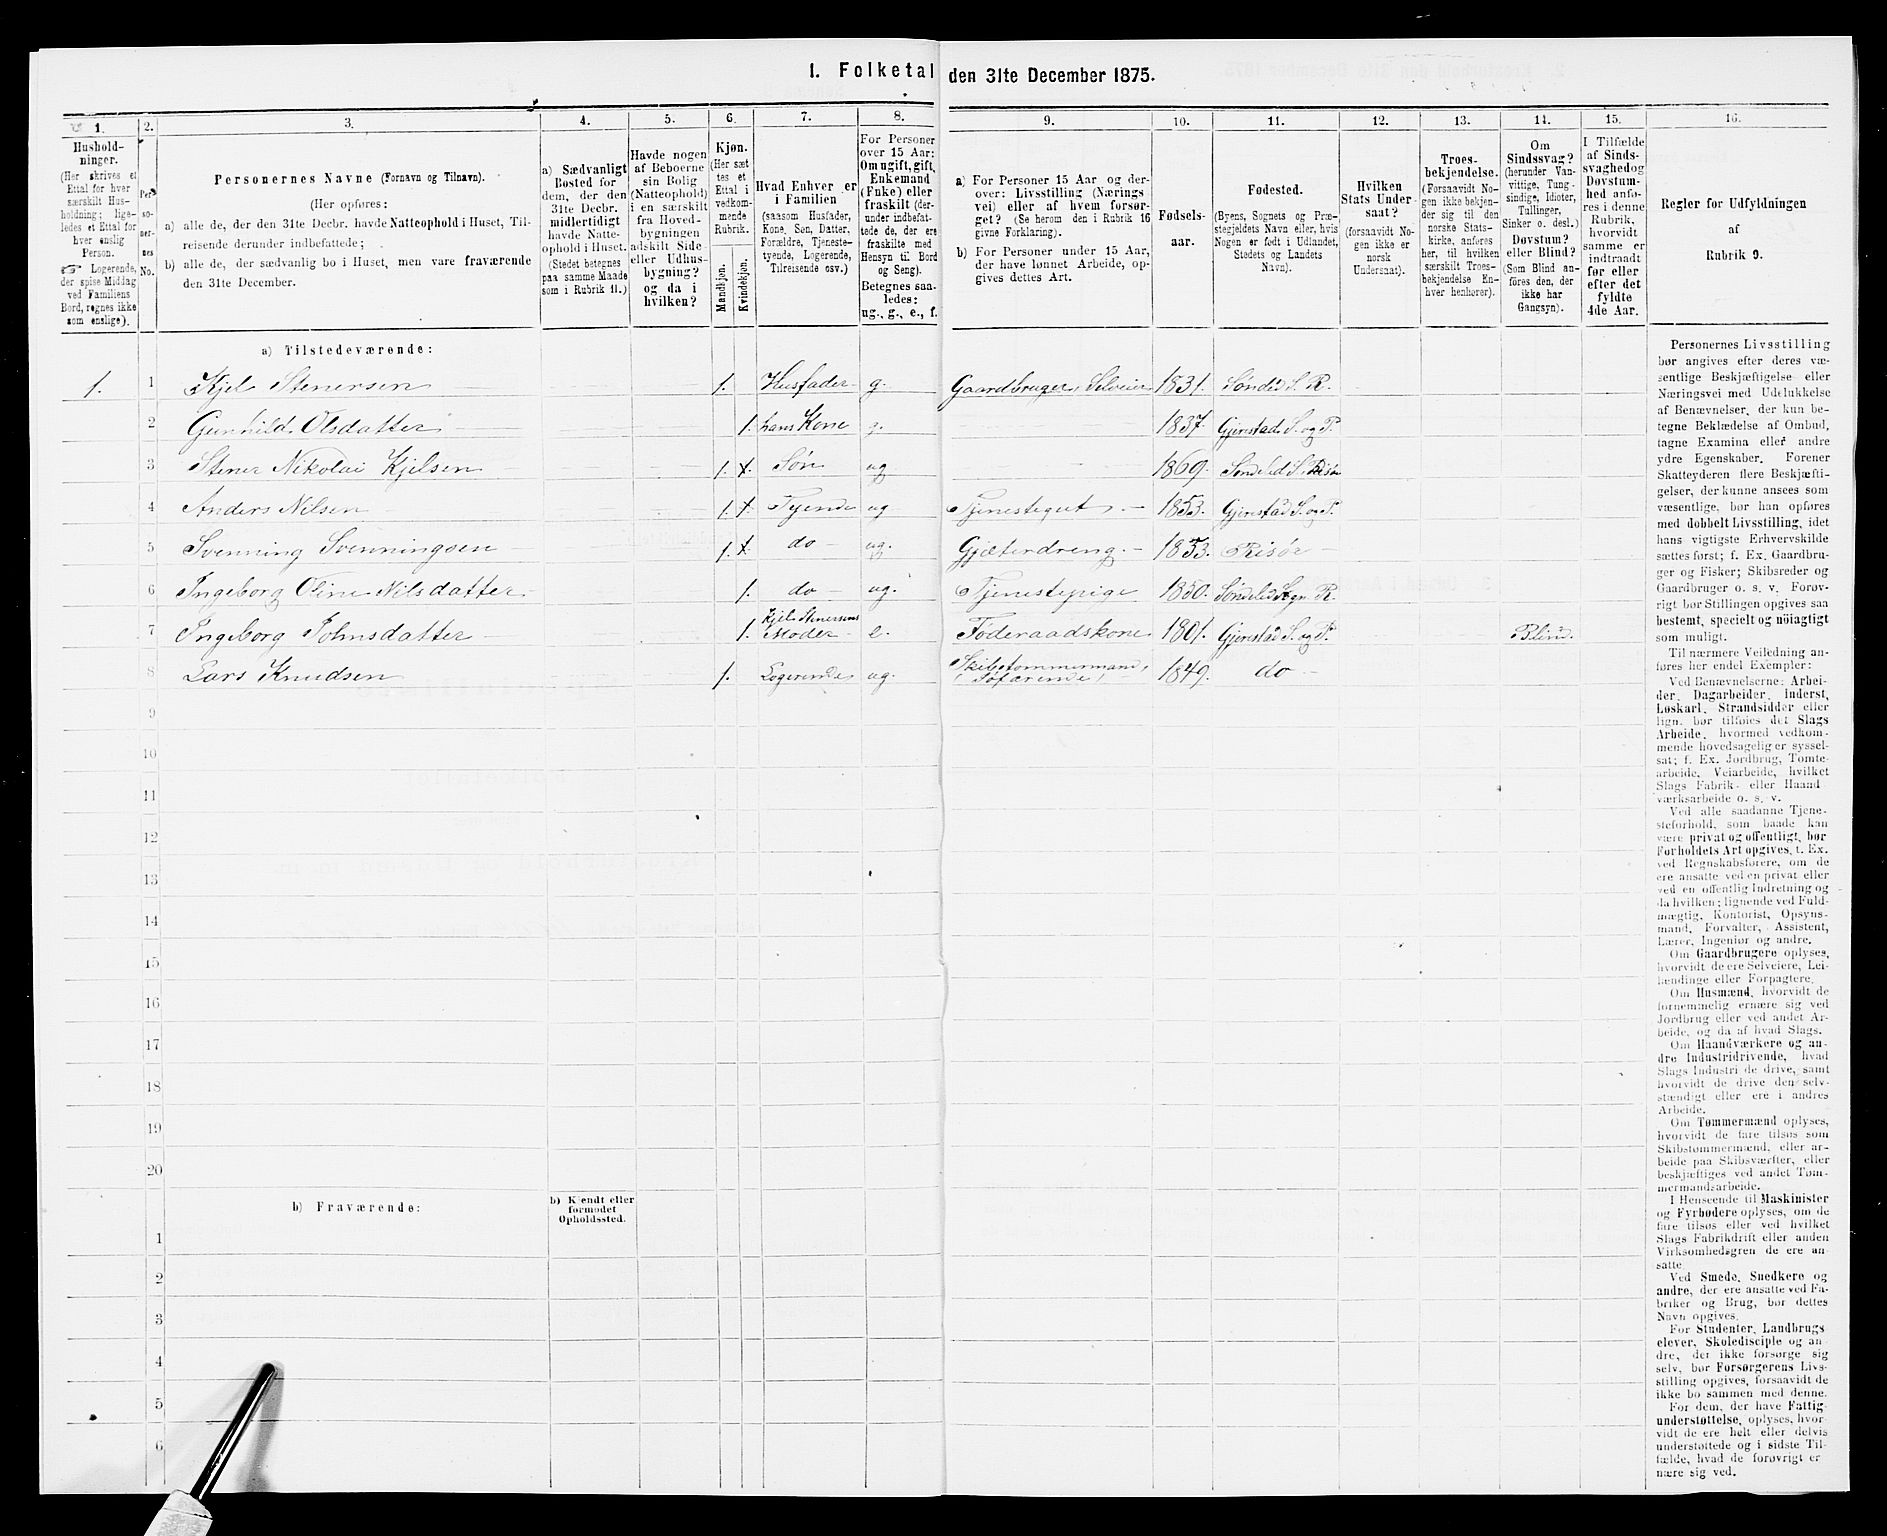 1. Folketal den 31te December 1875.
1.
Hushold-
ninger.
(Her skrives et
Ettal for hver
særskilt Hus-
holdning; lige-
ledes et Ettal for
hver enslig
Person.
☞ Logerende,
der spise Middag
ved Familiens
Bord, regnes ikke
som enslige).
2.
Per-
so-
ner-
nes
No.
3.
Personernes Navne (Fornavn og Tilnavn).
(Her opføres:
a) alle de, der den 31te Decbr. havde Natteophold i Huset, Til-
reisende derunder indbefattede;
b) alle de, der sædvanlig bo i Huset, men vare fraværende
den 31te December.
4.
a) Sædvanligt
Bosted for
dem, der den
31te Decbr.
midlertidigt
havde Natte-
ophold i Huset.
(Stedet betegnes
paa samme Maade
som i Rubrik 11.)
5.
Havde nogen
af Beboerne
sin Bolig
(Natteophold)
i en særskilt
fra Hoved-
bygningen
adskilt Side-
eller Udhus-
bygning?
og da i
hvilken?
6.
Kjøn.
(Her sæt-
tes et
Ettal i
vedkom-
mende
Rubrik.
Mandkjøn.
Kvindekjøn.
7.
Hvad Enhver er
i Familien
(saasom Husfader,
Kone, Søn, Datter,
Forældre, Tjeneste-
tyende, Logerende,
Tilreisende osv.)
8.
For Personer
over 15 Aar:
Om ugift, gift,
Enkemand
(Enke) eller
fraskilt (der-
under indbefat-
tede de, der ere
fraskilte med
Hensyn til Bord
og Seng).
Betegnes saa-
ledes:
ug., g., e., f.
9.
a) For Personer 15 Aar og der-
over: Livsstilling (Nærings-
vei) eller af hvem forsør-
get? (Se herom den i Rubrik 16
givne Forklaring).
b) For Personer under 15 Aar,
der have lønnet Arbeide, op-
gives dettes Art.
10.
Fødsels-
aar.
11.
Fødested.
(Byens, Sognets og Præ-
stegjeldets Navn eller, hvis
Nogen er født i Udlandet,
Stedets og Landets
Navn).
12.
Hvilken
Stats Under-
saat?
(forsaavidt No-
gen ikke er
norsk
Undersaat).
13.
Troes-
bekjendelse.
(Forsaavidt No-
gen ikke bekjen-
der sig til den
norske Stats-
kirke, anføres
her, til hvilken
særskilt Troes-
bekjendelse En-
hver henhører).
14.
Om
Sindssvag?
(herunder Van-
vittige, Tung-
sindige, Idioter,
Tullinger,
Sinker o. desl.)
Døvstum?
eller Blind?
(Som Blind an-
føres den, der
ikke har
Gangsyn).
15.
I Tilfælde
af Sinds-
svaghed og
Døvstum-
hed anfø-
res i denne
Rubrik,
hvorvidt
samme er
indtraadt
før eller
efter det
fyldte
4de Aar.
16.
Regler for Udfyldningen
af
Rubrik 9.
a) Tilstedeværende:
1. 1 Kjel Stenersen 1. Husfader g. Gaardbruger, Selveier 1831. Sønded S. R.
2 Gunhild Olsdatter 1. hans Kone g. 1837. Gjerestad S. og P.
3 Stener Nikolai Kjelsen 1. Søn ug 1869. Søndeled S. Risør
4 Anders Nilsen 1. Tyende ug Tjenestegut 1853. Gjerestad S. og P.
5 Svenning Svenningsen 1. do ug. Gjæterdreng. 1853. Risør
6 Ingeborg Oline Nilsdatter 1. do ug. Tjenestepige 1850. Søndeled Sogn R.
7 Ingeborg Johnsdatter 1. Kjel Stenersens
Moder e. Føderaadskone 1801. Gjerestad S. og P. Blind.
8 Lars Knudsen 1. Logerende ug. Skibstømmermand,
Søfarende, 1849. do
9
10
11
12
13
14
15
16
17
18
19
20
b) Fraværende:
b) Kjendt eller
formodet
Opholdssted.
1
2
3
4
5
6
Personernes Livsstilling
bør angives efter deres væ-
sentlige Beskjæftigelse eller
Næringsvei med Udelukkelse
af Benævnelser, der kun be-
tegne Beklædelse af Ombud,
tagne Examina eller andre
ydre Egenskaber. Forener
Skatteyderen flere Beskjæfti-
gelser, der kunne ansees som
væsentlige, bør han opføres
med dobbelt Livsstilling, idet
hans vigtigste Erhvervskilde
sættes først; f. Ex. Gaardbru-
ger og Fisker; Skibsreder og
Gaardbruger o. s. v. Forøv-
rigt bør Stillingen opgives saa
bestemt, specielt og nöiagtigt
som muligt.
Til nærmere Veiledning an-
føres her endel Exempler:
Ved Benævnelserne: Arbei-
der, Dagarbeider, Inderst,
Løskarl, Strandsidder eller
lign. bør tilføies det Slags
Arbeide, hvormed vedkom-
mende hovedsagelig er syssel-
sat; f. Ex. Jordbrug, Tomte-
arbeide, Veiarbeide, hvilket
Slags Fabrik- eller Haand-
værksarbeide o. s. v.
Ved alle saadanne Tjene-
steforhold, som baade kan
være privat og offentligt, bør
Forholdets Art opgives, f. Ex.
ved Regnskabsførere, om de
ere ansatte ved en privat eller
ved en offentlig Indretning og
da hvilken; lignende ved Fuld-
mægtig, Kontorist, Opsyns-
mand, Forvalter, Assistent,
Lærer, Ingeniør og andre.
Om Gaardbrugere oplyses,
hvorvidt de ere Selveiere, Lei-
lændinge eller Forpagtere.
Om Husmænd, hvorvidt de
fornemmelig ernære sig ved
Jordbrug eller ved andet Ar-
beide, og da af hvad Slags.
Om Haandværkere og an-
dre Industridrivende, hvad
Slags Industri de drive, samt
hvorvidt de drive den selv-
stændigt eller ere i andres
Arbeide.
Om Tømmermænd oplyses,
hvorvidt de fare tilsøs som
Skibstømmermænd, eller ar-
beide paa Skibsværfter, eller
beskjæftiges ved andet Tøm-
mermandsarbeide.
I Henseende til Maskinister
og Fyrbødere oplyses, om de
fare tilsøs eller ved hvilket
Slags Fabrikdrift eller anden
Virksomhedsgren de ere an-
satte.
Ved Smede, Snedkere og
andre, der ere ansatte ved Fa-
briker og Brug, bør dettes
Navn opgives.
For Studenter, Landbrugs-
elever, Skoledisciple og an-
dre, der ikke forsørge sig
selv, bør Forsørgerens Livs-
stilling opgives, forsaavidt de
ikke bo sammen med denne.
For dem, der have Fattig-
understøttelse, oplyses, hvor-
vidt de ere helt eller delvis
understøttede og i sidste Til-
fælde, hvad de forøvrigt er-
nære sig ved.